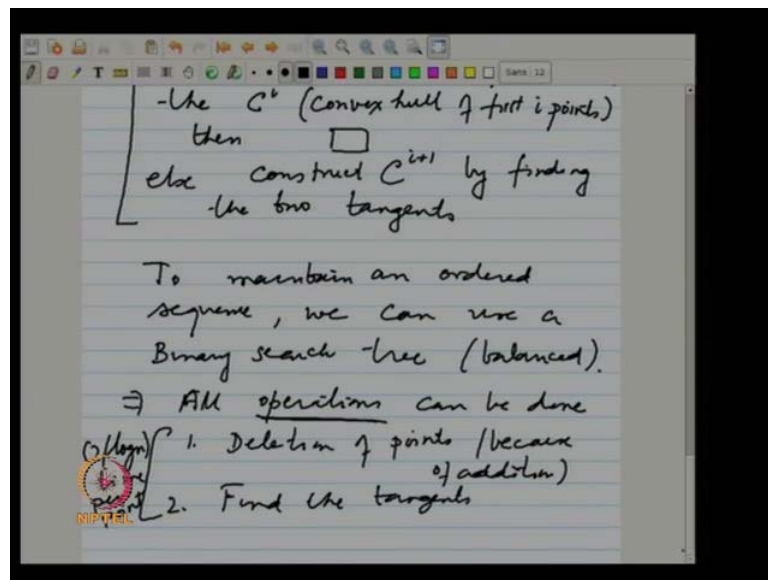 Sans 12
-the C^i (Convex hull of first i points)
then □
else construct C^{i+1} by finding
-the two tangents
To maintain an ordered
sequence, we can use a
Binary search tree (balanced).
⇒ All operations can be done
1. Deletion of points (because
of addition)
O(logn) time per point
2. Find the tangents
NPTEL